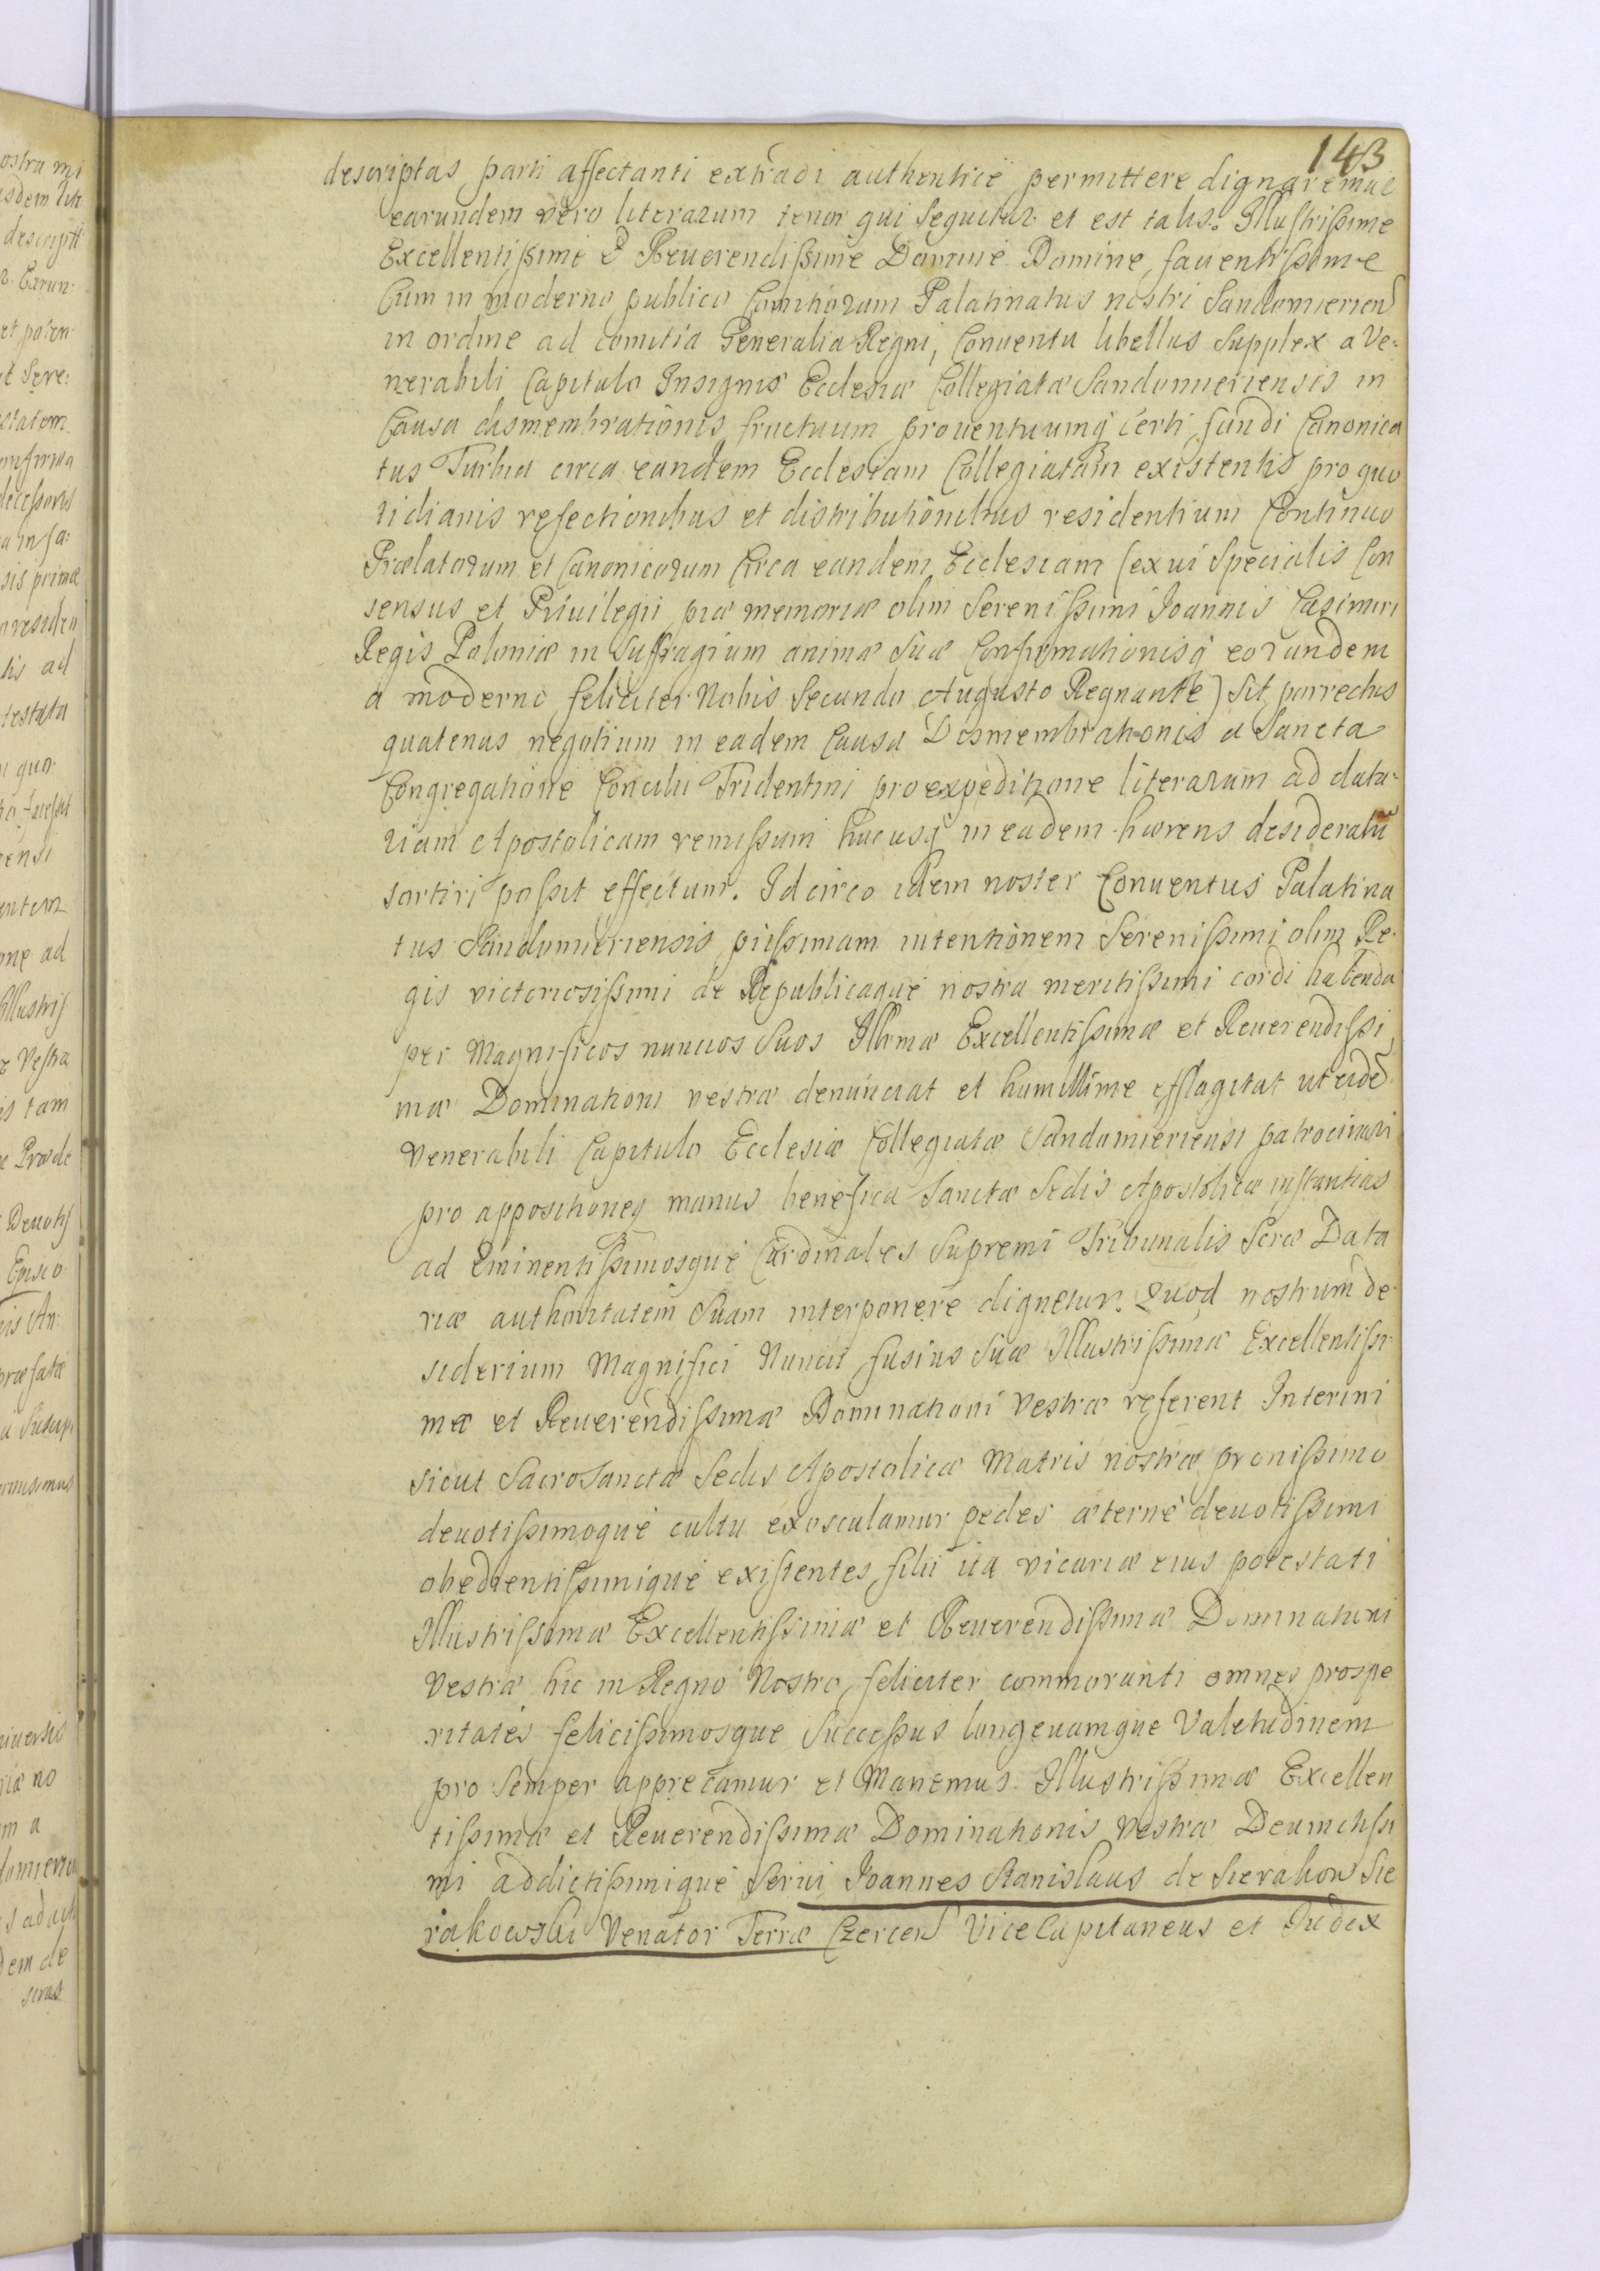 143
descriptas parti affectanti extradi authentice permittere dignaremur
earundem vero literarum tenor qui sequitur et est talis. Illustrissime
Excellentissime & Reverendissime Domine Domine faventissime
Cum in moderno publico Comitiorum Palatinatus nostri Sandomirien
in ordine ad comitia Generalia Regni, Conventu libellus Supplex a Ve-
nerabili Capitulo Insignis Ecclesiæ Collegiatæ Sandomieriensis in
Causa dismembrationis fructuum proventuumq certi fundi Canonica
tus Turbia circa eandem Ecclesiam Collegiatam existentis pro quo
tidianis refectionibus et distributionibus residentium Continuo
Prælatorum et Canonicorum Circa eandem Ecclesiam (ex vi Specialis Con
sensus et Privilegii piæ memoriæ olim Serenissimi Joannis Casimiri
Regis Poloniæ in Suffragium animæ Suæ Confirmationisq eorundem
a moderno feliciter Nobis Secundo Augusto Regnante) Sit porrectus
quatenus negotium in eadem Causa Dismembrationis a Sancta
Congregatione Concilii Tridentini pro expeditione literarum ad data-
riam Apostolicam remissum hucusq in eadem hærens desideratu
sortiri possit effectum. Idcirco idem noster Conventus Palatina
tus Sandomieriensis piissimam intentionem Serenissimi olim Re-
gis victoriosissimi de Republicaque nostra meritissimi cordi habendo
per Magnificos nuncios Suos Illmæ Excellentissimæ et Reverendissi
mæ Dominationi vestræ denunciat et humillime efflagitat ut eidē
Venerabili Capitulo Ecclesiæ Collegiatæ Sandomieriensi patrocinari
pro appositioneq manus benefica Sanctæ Sedis Apostolicæ instantias
ad Eminentissimosque Cardinales Supremi Tribunalis Scræ Data
riæ authoritatem Suam interponere dignetur. Quod nostrum de-
siderium Magnifici Nuncii fusius Suæ Illustrissimæ Excellentissi-
mæ et Reverendissimæ Dominationi Vestræ referent Interim
sicut SacroSanctæ Sedis Apostolicæ Matris nostræ pronissimo
devotissimoque cultu exosculamur pedes æterne devotissimi
obedientissimique existentes filii ita vicariæ eius potestati
Illustrissimæ Excellentissimæ et Reverendissimæ Dominationi
Vestræ hic in Regno Nostro feliciter commoranti omnes prospe
ritates felicissimosque Successus longevamque Valetudinem
pro Semper apprecamur et Manemus. Illustrissimæ Excellen
tissimæ et Reverendissimæ Dominationis Vestræ Devinctissi
mi addictissimique Servi Joannes Stanislaus de Sierakow Sie
rakowski Venator Terræ Czercen ViceCapitaneus et Judex